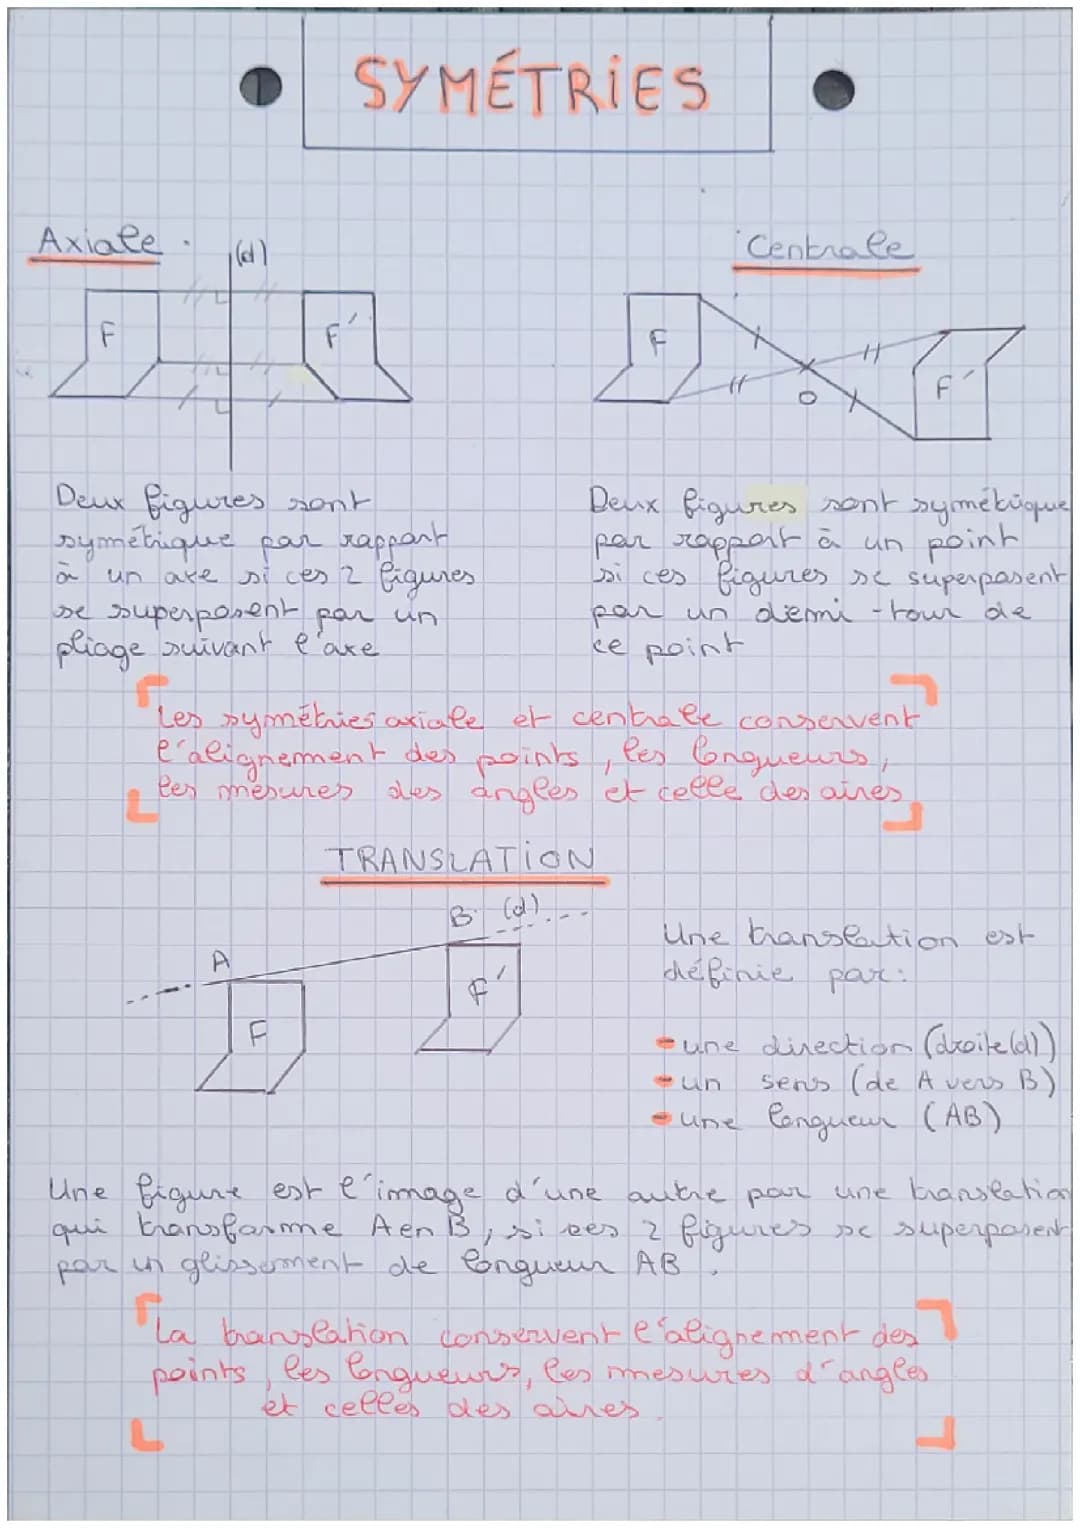 SYMÉTRIES
Axiale
(d)
F
F'
Deux figures sont
symétrique par rapport
à un axe si ces 2 figures
se superposent par un
pliage suivant l'axe
Centrale
F
O
F'
Deux figures sont symétrique
par rapport à un point
si ces figures se superposent
par un demi-tour de
ce point
Les symétries axiale et centrale conservent
l'alignement des points, les longueurs,
les mesures des angles et celle des aires
TRANSLATION
A
B (d)
F
F'
Une translation est
définie par:
- une direction (droite (d))
- un sens (de A vers B)
- une longueur (AB)
Une figure est l'image d'une autre par une translation
qui transforme A en B, si ces 2 figures se superposent
par un glissement de longueur AB.
La translation conservent l'alignement des
points, les longueurs, les mesures d'angles
et celles des aires.